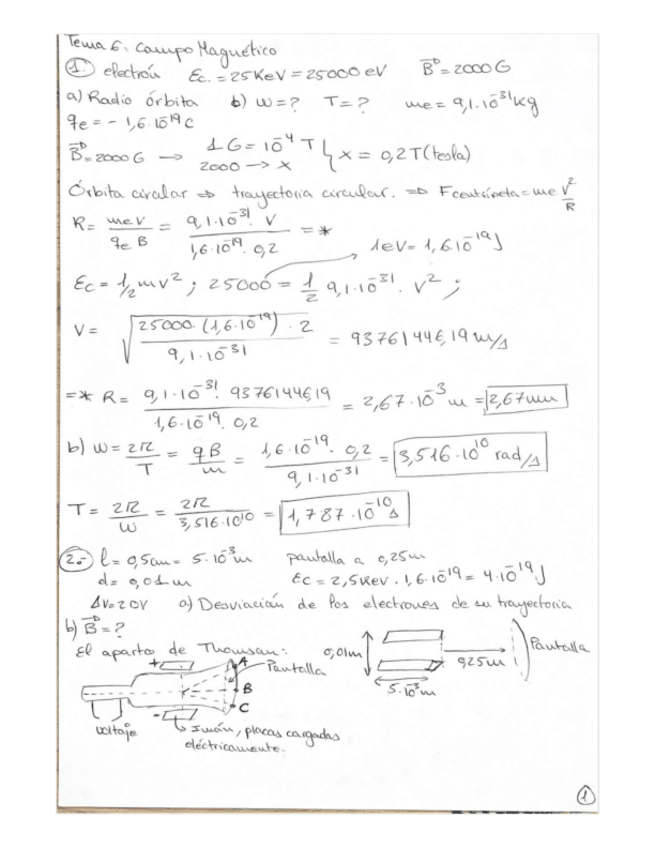 Tema 6: Campo Magnético
1. electrón Ec = 25 KeV = 25000 eV B = 2000 G
a) Radio órbita b) ω = ? T = ? me = 9,1·10⁻³¹ kg
qe = - 1,6·10⁻¹⁹ C
B = 2000 G → 1 G = 10⁻⁴ T
2000 → x } x = 0,2 T (tesla)
Órbita circular ⇒ trayectoria circular. ⇒ F centrípeta = me v²/R
R = me v / qe B = 9,1·10⁻³¹ · V / 1,6·10⁻¹⁹ · 0,2 = *
1 eV = 1,6·10⁻¹⁹ J
Ec = 1/2 m v² ; 25000 = 1/2 9,1·10⁻³¹ · V² ;
V = √(25000 · (1,6·10⁻¹⁹) · 2 / 9,1·10⁻³¹) = 93761446,19 m/s
=* R = 9,1·10⁻³¹ · 93761446,19 / 1,6·10⁻¹⁹ · 0,2 = 2,67·10⁻³ m = 2,67 mm
b) ω = 2π/T = qB/m = 1,6·10⁻¹⁹ · 0,2 / 9,1·10⁻³¹ = 3,516·10¹⁰ rad/s
T = 2π/ω = 2π / 3,516·10¹⁰ = 1,787·10⁻¹⁰ s
2.- l = 0,5 cm = 5·10⁻³ m pantalla a 0,25 m
d = 0,01 m Ec = 2,5 KeV · 1,6·10⁻¹⁹ = 4·10⁻¹⁹ J
ΔV = 20V a) Desviación de los electrones de su trayectoria
b) B = ?
El aparto de Thomsan:
+ A
Pantalla
B
- C
voltaje
Imán, placas cargadas
eléctricamente.
0,01 m
Pantalla
0,25 m
5·10⁻³ m
1